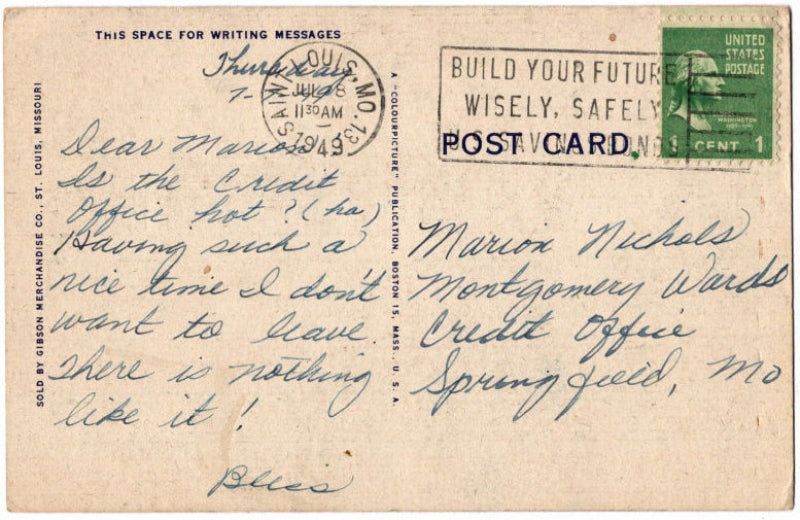 THIS SPACE FOR WRITING MESSAGES
Thursday
7-7-49
Dear Marion
Is the Credit
Office hot? (ha)
Having such a
nice time I don't
want to leave.
There is nothing
like it!
SOLD BY GIBSON MERCHANDISE CO., ST. LOUIS, MISSOURI
A "COLOURPICTURE" PUBLICATION, BOSTON 15, MASS., U.S.A.
SAINT LOUIS, MO. 13
JUL 8
11 30 AM
1949
BUILD YOUR FUTURE
WISELY, SAFELY
U.S. SAVINGS BONDS
POST CARD
UNITED
STATES
POSTAGE
WASHINGTON
1 CENT 1
Marion Nichols
Montgomery Wards
Credit Office
Springfield, Mo